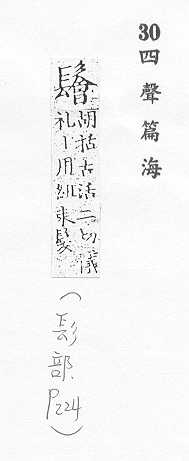 30 四聲篇海
鬠
胡括古活二切儀
礼丨用組束髮
(髟部. P224)